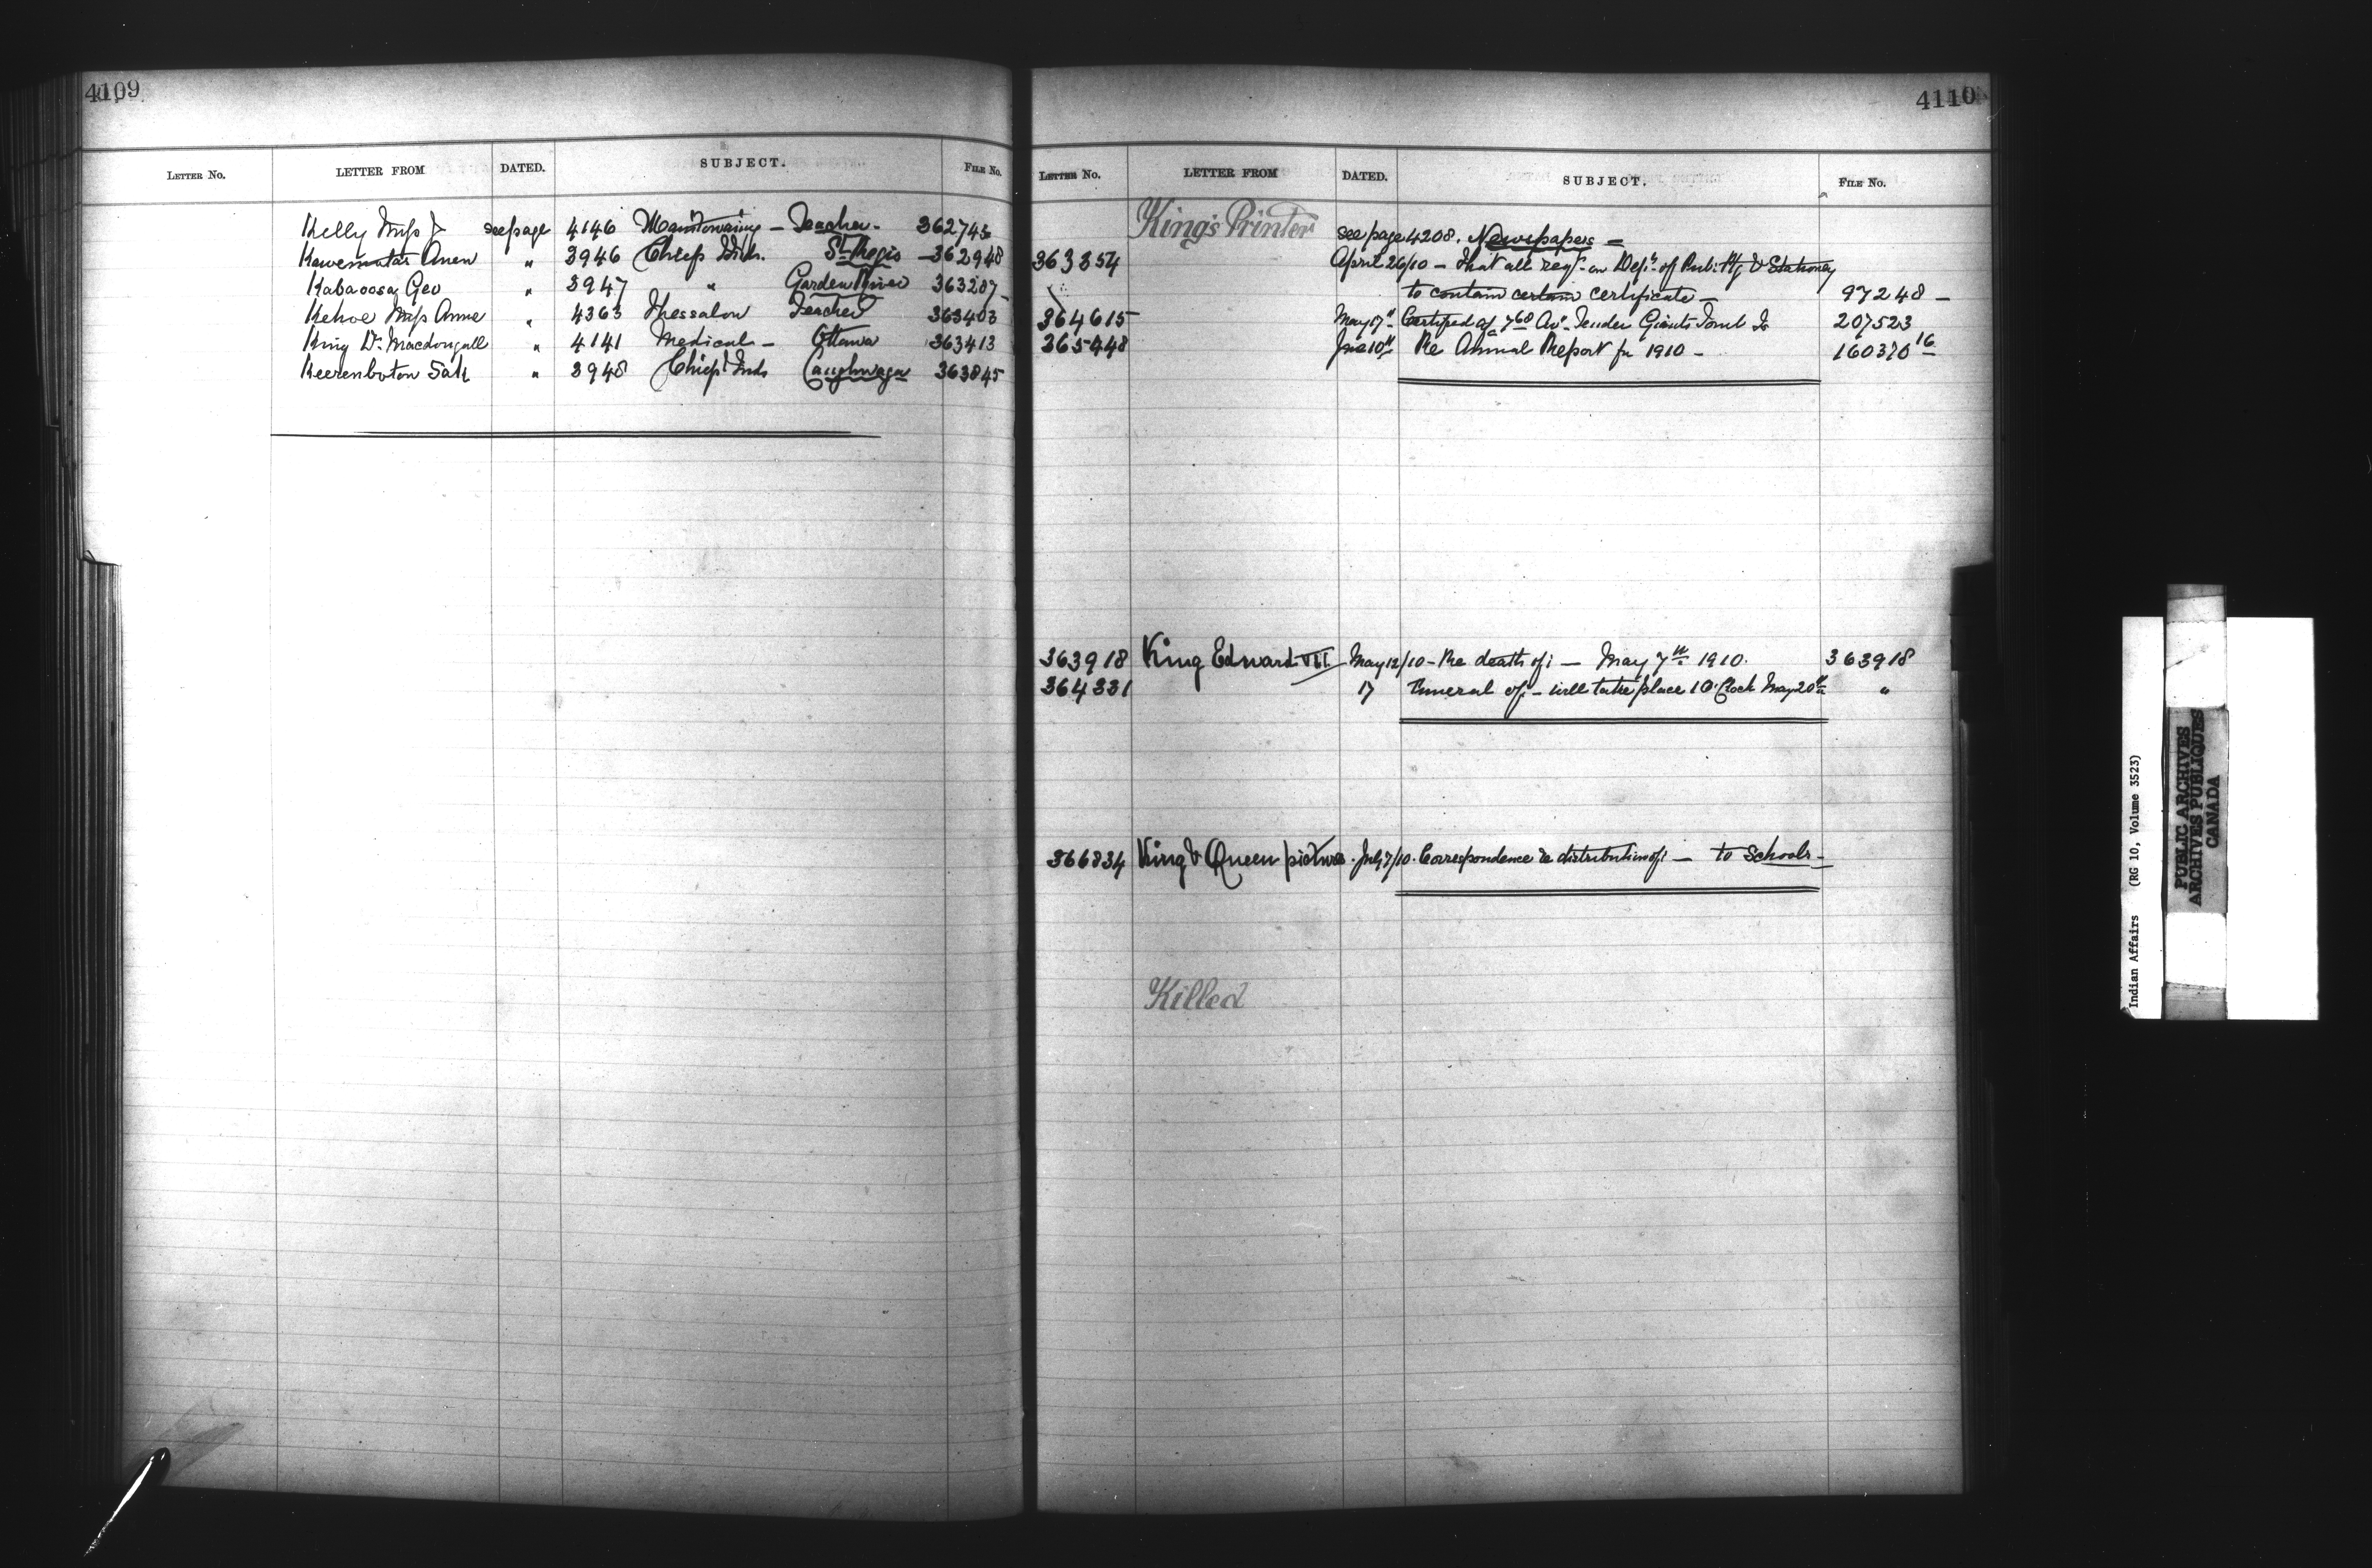 4109
LETTER NO. LETTER FROM DATED. SUBJECT. FILE NO.
Kelly Miss J see page 4146 Manitowaning - Teacher - 362745
Anen " 3946 Chiefs Inds. St. Regis - 362948
Kabaoosa Geo " 3947 " Garden River 363207
Kehoe Miss Anne " 4363 Thessalon Teacher 363403
King Dr. Macdougall " 4141 Medical - Ottawa 363413
Sak " 3948 Chiefs Inds Caughnaga 363845
4110
LETTER NO. LETTER FROM DATED. SUBJECT. FILE NO.
King's Printer
see page 4208. Newspapers -
363354 April 26/10 - That all on Dept. of Pub. Ptg & Stationery
to contain certain certificate - 97248 -
364615 May 17" Certified a/c 768 Av. Tender Giants Tomb Is 207523
365448 June 10" Re Annual Report for 1910 - 160370 16
363918 King Edward VII. May 12/10 - Re death of: - May 7th 1910. 363918
364331 17 Funeral of: - will take place 1 O'Clock May 20th "
366834 King & Queen pictures. July 7/10. Correspondence re distribution of: - to Schools -
Killed
Indian Affairs (RG 10, Volume 3523)
PUBLIC ARCHIVES
ARCHIVES PUBLIQUES
CANADA